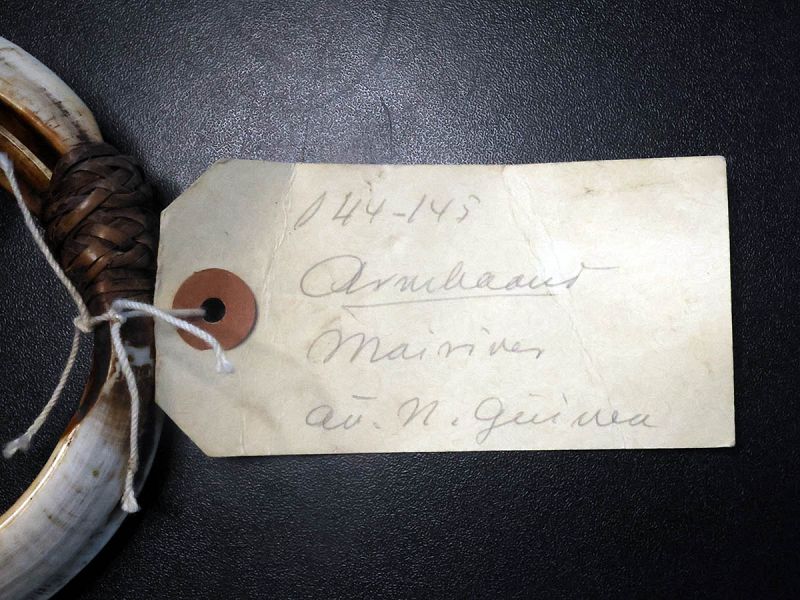 144-145
Armbaand
Mairiver
au. N. Guinea